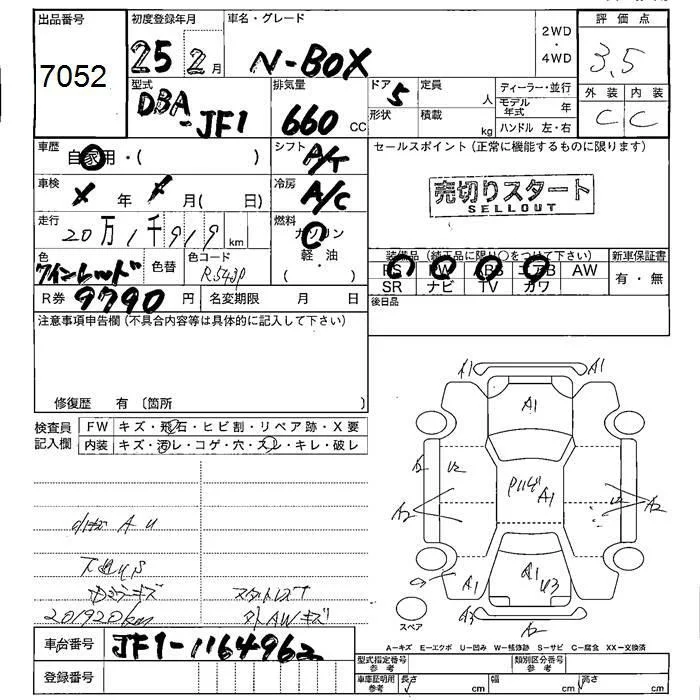 出品番号
7052
初度登録年月
25 2月
車名・グレード
N-BOX
2WD
・
4WD
評価点
3.5
外装 内装
C C
型式
DBA-JF1
排気量
660 cc
ドア 5
形状
定員 人
積載 kg
ディーラー・並行
モデル年式 年
ハンドル 左・右
車歴
自家用・( )
シフト
A/T
セールスポイント(正常に機能するものに限ります)
売切りスタート
SELLOUT
車検
X 年 月( 日)
冷房
A/C
走行
20万1千919 km
燃料
ガソリン
軽・油
( )
色
ワインレッド
色替
色コード
R543P
装備品(純正品に限り○をつけて下さい)
PS PW ABS エアB AW
SR ナビ TV カワ
新車保証書
有・無
R券 9790円
名変期限 月 日
後日品
注意事項申告欄(不具合内容等は具体的に記入して下さい)
修復歴 有〔箇所 〕
検査員記入欄
FW キズ・飛石・ヒビ割・リペア跡・X要
内装 キズ・汚レ・コゲ・穴・スレ・キレ・破レ
A1 A1
A1
A2 U2 A1 U2 A2
A2
A1 A1 U3
A3 A2
スペア
下廻りS
201920km
外AWキズ
車台番号 JF1-1164962
A-キズ E-エクボ U-凹み W-補修跡 S-サビ C-腐食 XX-交換済
登録番号
型式指定番号参考
類別区分番号参考
車庫証明用参考
長さ cm
幅 cm
高さ cm